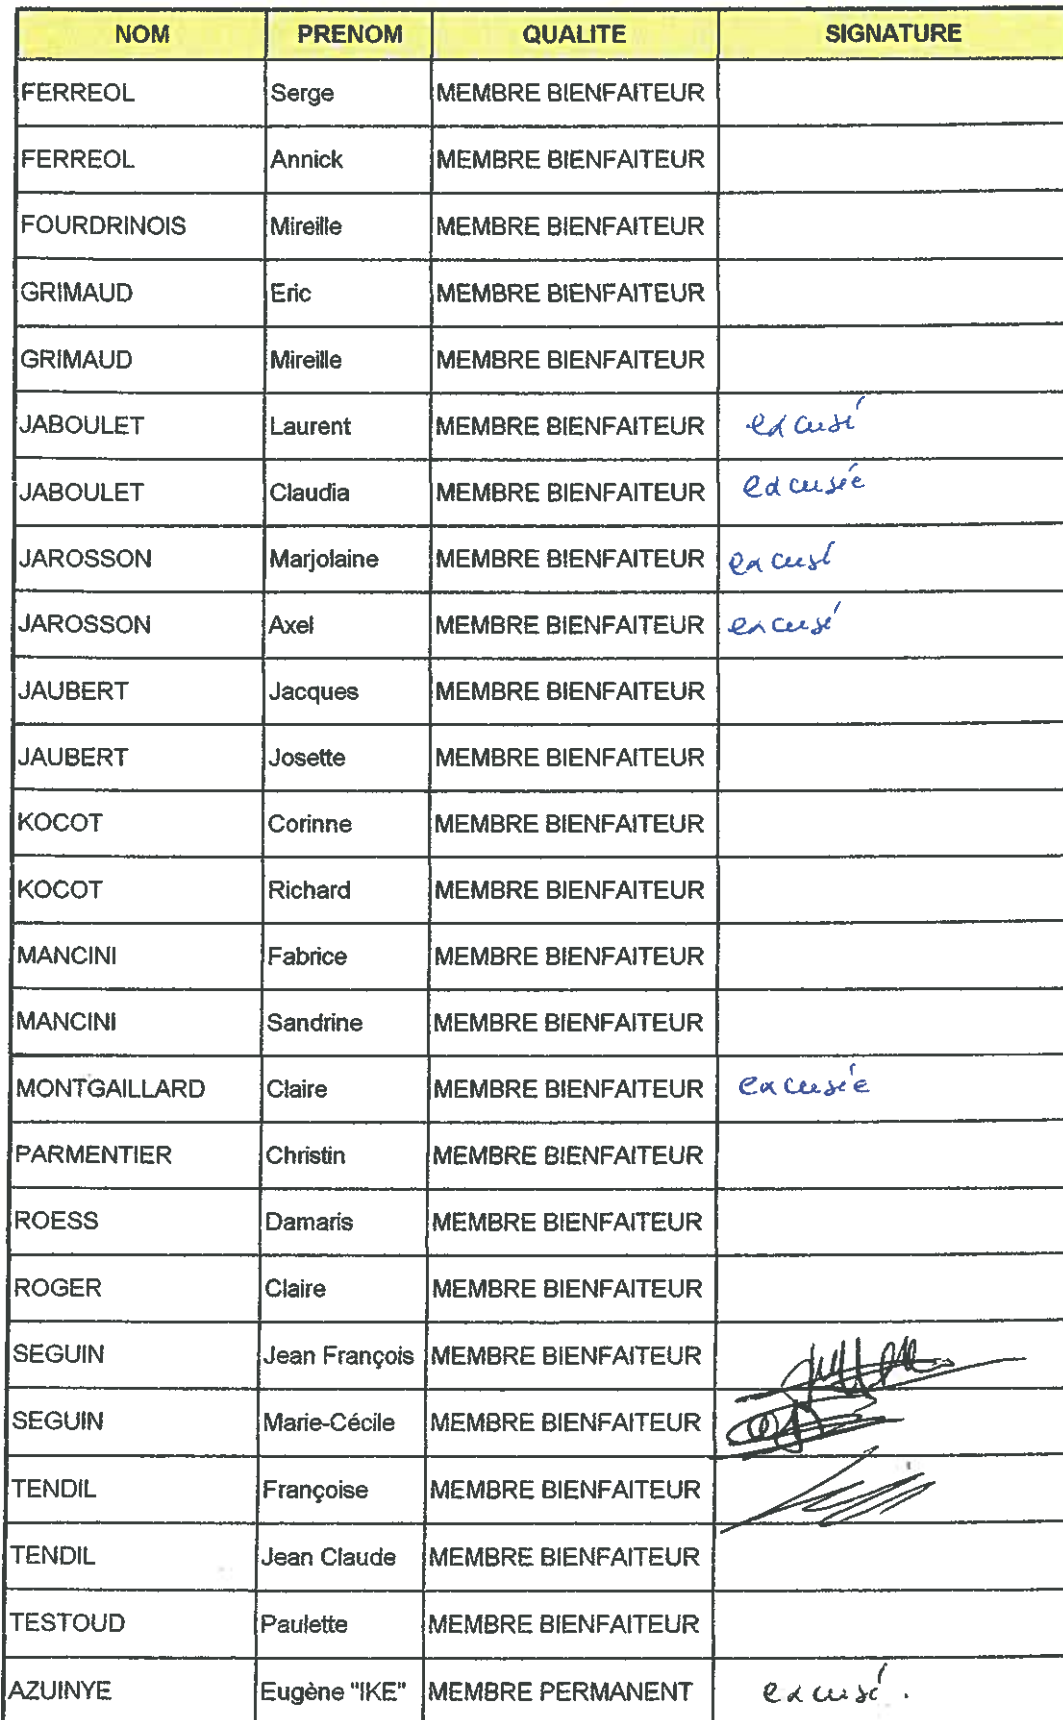 NOM PRENOM QUALITE SIGNATURE
FERREOL Serge MEMBRE BIENFAITEUR
FERREOL Annick MEMBRE BIENFAITEUR
FOURDRINOIS Mireille MEMBRE BIENFAITEUR
GRIMAUD Eric MEMBRE BIENFAITEUR
GRIMAUD Mireille MEMBRE BIENFAITEUR
JABOULET Laurent MEMBRE BIENFAITEUR excusé
JABOULET Claudia MEMBRE BIENFAITEUR excusée
JAROSSON Marjolaine MEMBRE BIENFAITEUR excusé
JAROSSON Axel MEMBRE BIENFAITEUR excusé
JAUBERT Jacques MEMBRE BIENFAITEUR
JAUBERT Josette MEMBRE BIENFAITEUR
KOCOT Corinne MEMBRE BIENFAITEUR
KOCOT Richard MEMBRE BIENFAITEUR
MANCINI Fabrice MEMBRE BIENFAITEUR
MANCINI Sandrine MEMBRE BIENFAITEUR
MONTGAILLARD Claire MEMBRE BIENFAITEUR excusée
PARMENTIER Christin MEMBRE BIENFAITEUR
ROESS Damaris MEMBRE BIENFAITEUR
ROGER Claire MEMBRE BIENFAITEUR
SEGUIN Jean François MEMBRE BIENFAITEUR
SEGUIN Marie-Cécile MEMBRE BIENFAITEUR
TENDIL Françoise MEMBRE BIENFAITEUR
TENDIL Jean Claude MEMBRE BIENFAITEUR
TESTOUD Paulette MEMBRE BIENFAITEUR
AZUINYE Eugène "IKE" MEMBRE PERMANENT excusé.